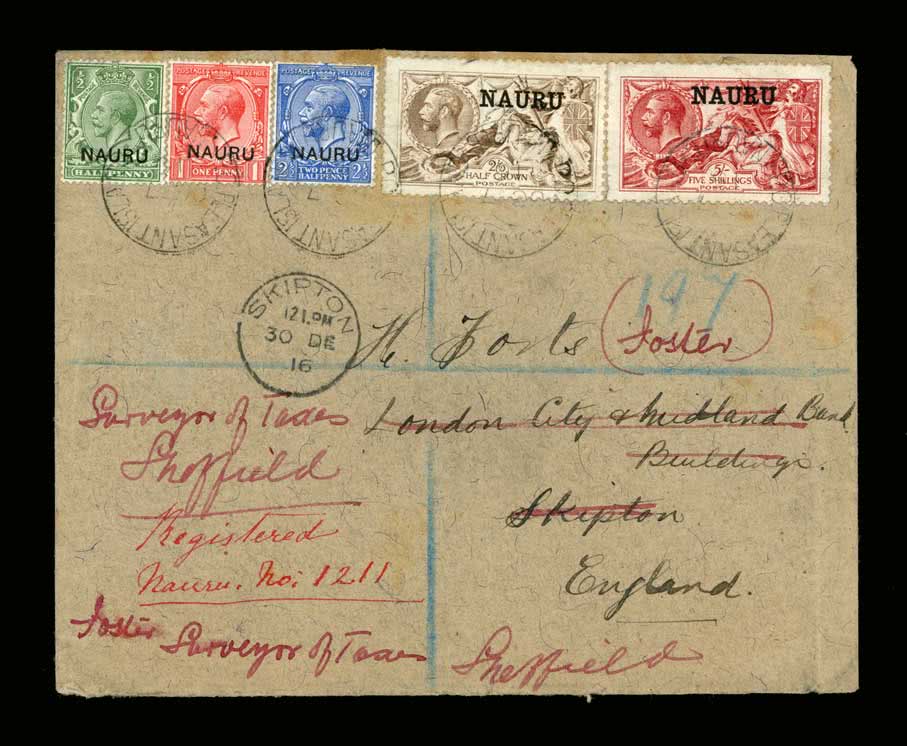 ½ ½
NAURU
HALFPENNY
POSTAGE REVENUE
NAURU
1 ONE PENNY 1
POSTAGE REVENUE
NAURU
2½ TWO PENCE HALFPENNY 2½
NAURU
2/6
HALF CROWN
POSTAGE
NAURU
5/-
FIVE SHILLINGS
POSTAGE
PLEASANT ISLAND
PLEASANT ISLAND
PLEASANT
PLEASANT
SKIPTON
12 1.PM
30 DE
16
197
H. Forts (Foster)
London City & Midland Bank
Buildings.
Skipton
England.
Surveyor of Taxes
Sheffield
Registered
Nauru. No: 1211
Foster Surveyor of Taxes Sheffield